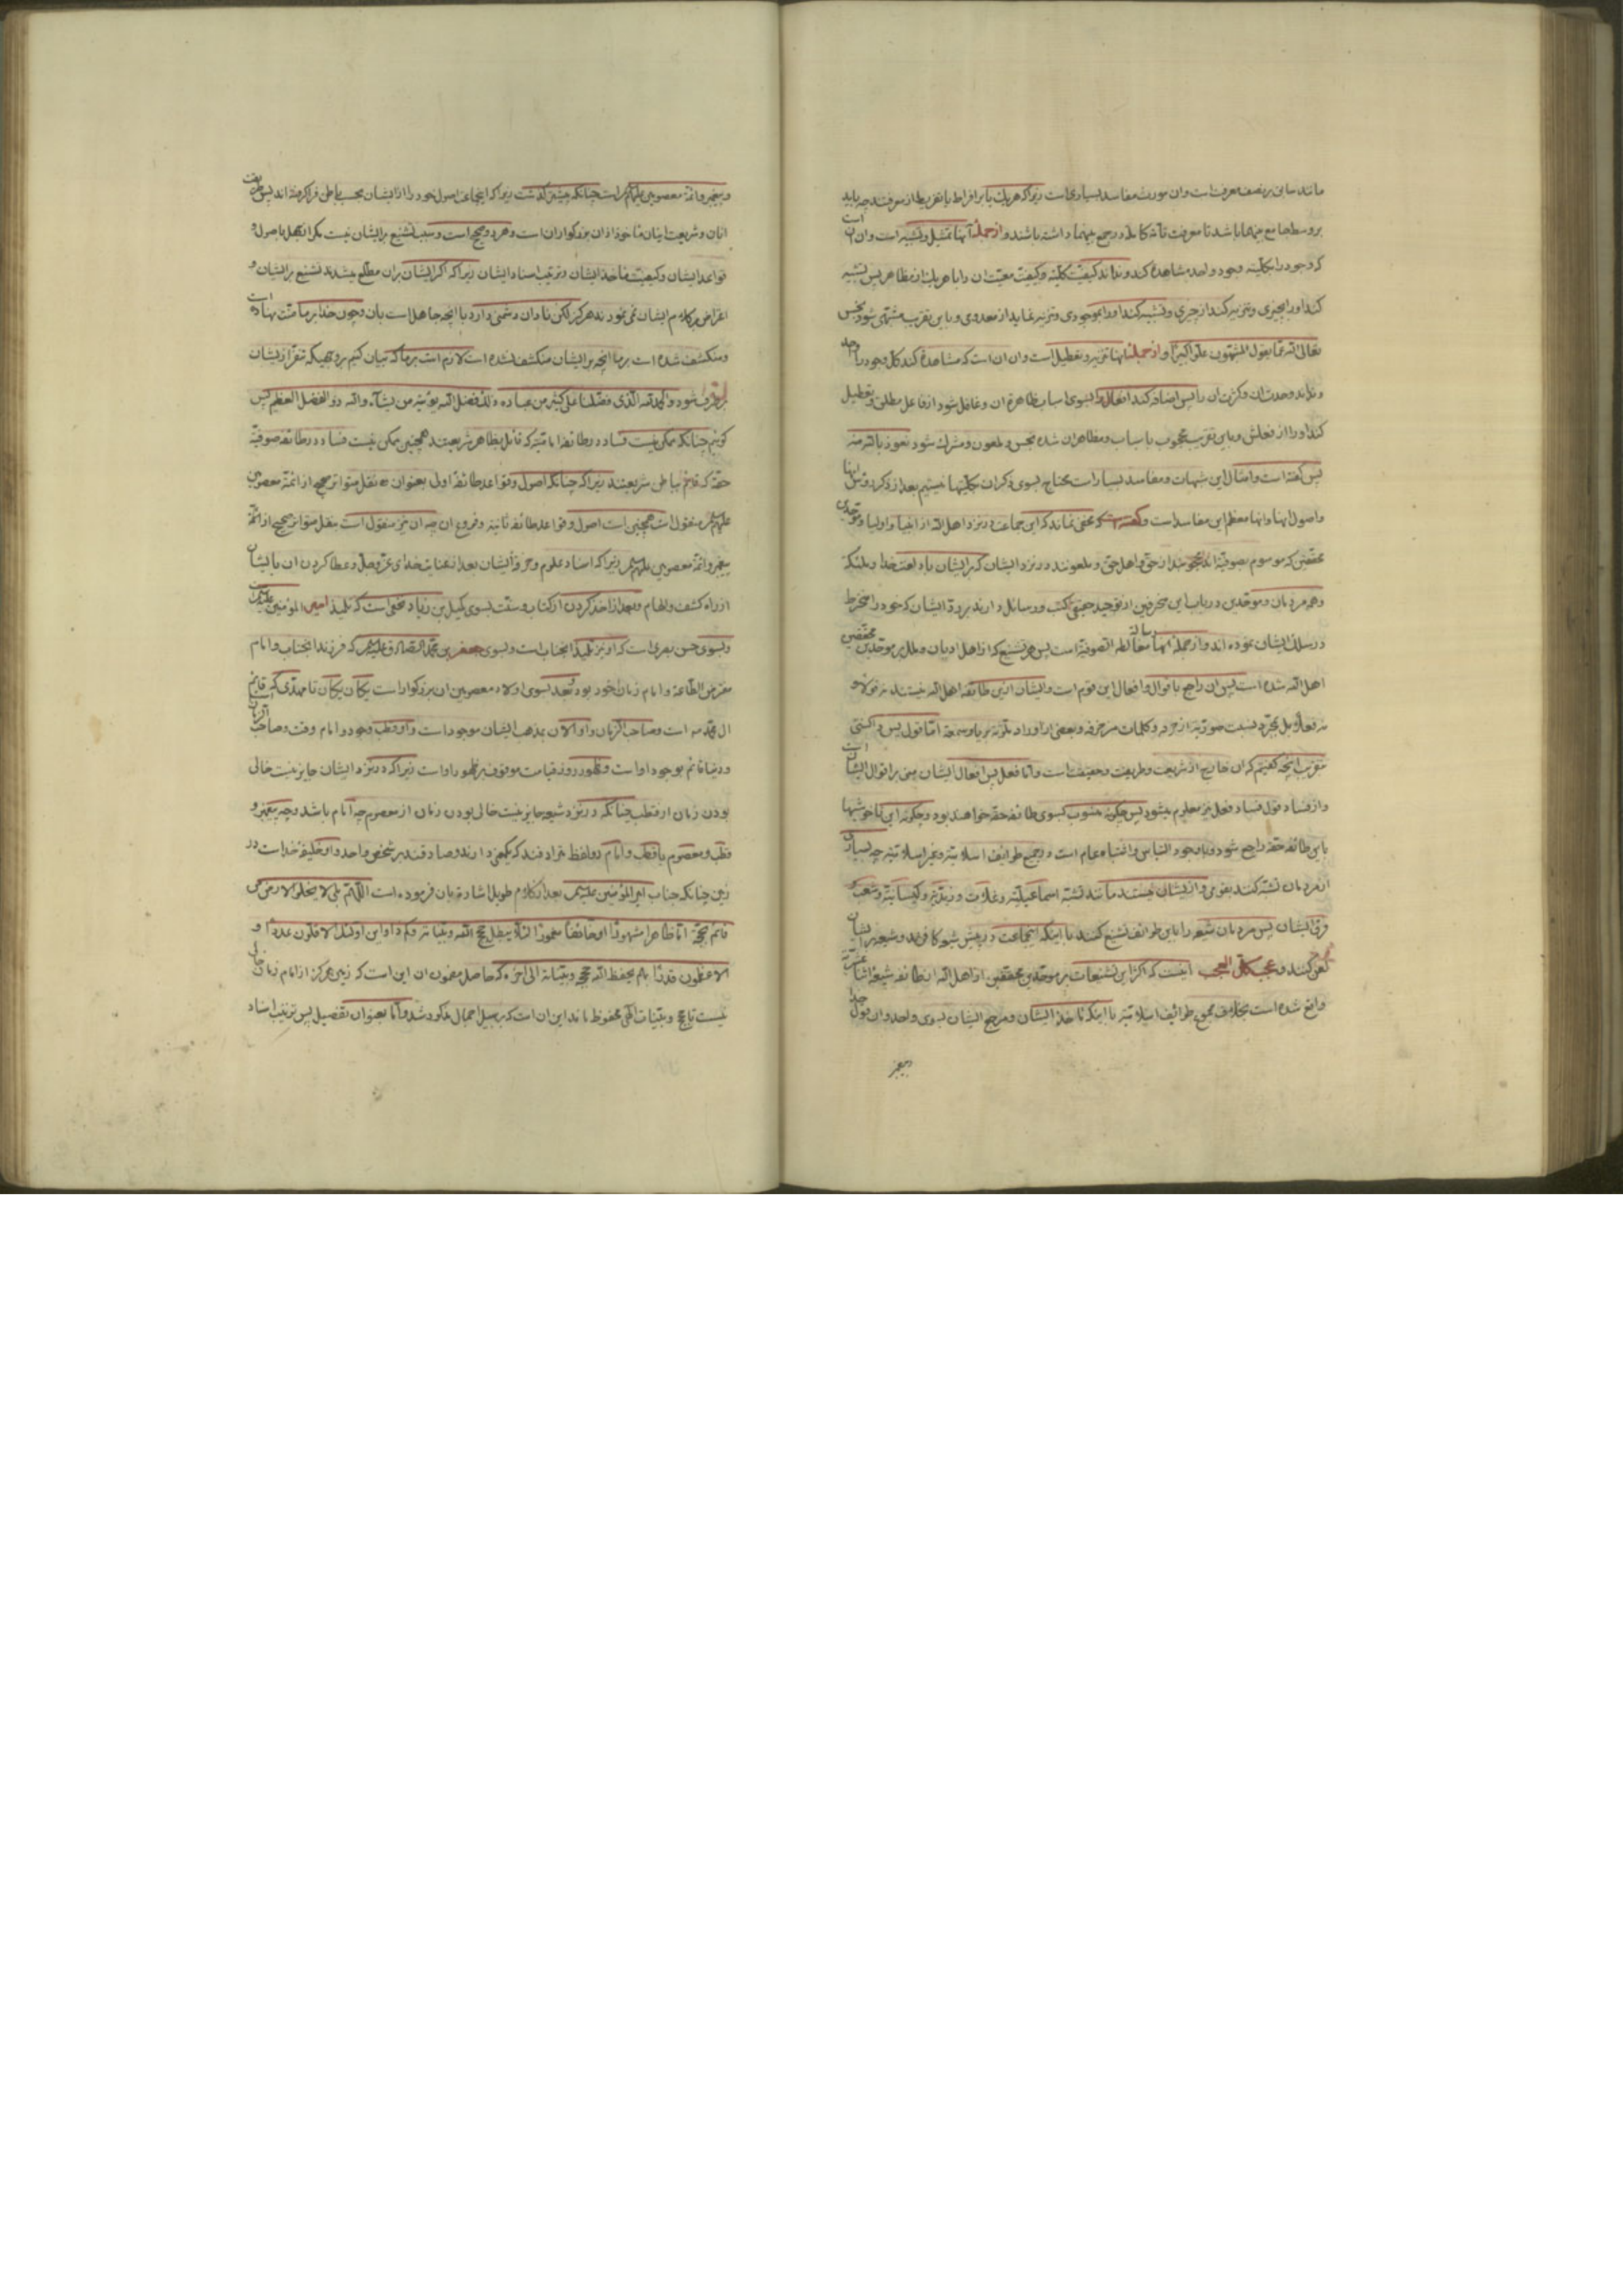 مانند سابق بر نصف معرفت است وان مورث مفاسد بسیاری است زیرا که هریک یا بر افراط یا تفریط از معرفتند چه باید
بر وسط جامع بینهما باشد تا معرفت تامّه کامله در جمع بینهما داشته باشند و از جملۀ آنها تمثیل و تشبیه است وان آن است
که وجود را بکلّیته وجود واحد مشاهده کند و نداند کیفیّت کلّیّه و کیفیّت معیّت ان را با هریک از مظاهر پس تشبیه
کند او را بچیزی و تنزیه کند از چیزی و تشبیه کند او را بموجودی و تنزیه نماید از معدومی و باین تقریب مشتهی شود نجس
تعالی الله عمّا یقول المشبّهون علوّا کبیرا و از جملۀ انها تنزیه و تعطیل است وان ان است که مشاهده کند کلّ وجود را واحد
و نداند وحدت ان و کثرت ان را پس اضافه کند افعال را بسوی اسباب ظاهرۀ ان و غافل شود از فاعل مطلق و تعطیل
کند او را از فعلش و باین تقریب محجوب باسباب و مظاهر ان شده نجس و ملعون و مشرک شود نعوذ بالله منه
پس گفته است و امثال این شبهات و مفاسد بسیار است محتاج بسوی ذکر ان بکلّیتها نیستیم بعد از ذکر رؤس انها
و اصول انها و انها معظم این مفاسد است و مخفی نماند که این جماعت در نزد اهل الله از انبیا و اولیا و موحّدین
محقّقین که موسوم بصوفیّه اند محجوبند از حق و اهل حق و ملعونند در نزد ایشان که بر ایشان باد لعنت خدا و ملئکه
و همۀ مردمان و موحّدین در باب این منحرفین از توحید حقیقی کتب و رسائل دارند بر ردّ ایشان که خود را منخرط
در سلک ایشان نموده اند و از جملۀ انها رسالۀ مغالطة الصّوفیّه است پس هر تشنیع که از اهل ادیان و ملل بر موحّدین محقّقین
اهل الله شده است پس ان راجع باقوال و افعال این قوم است و ایشان ازین طائفه اهل الله نیستند نه قولا و
نه فعلا بل بمجرّد نسبت صوریّه از خرقه و کلمات مزخرفه و بعضی از اوراد ملوّنه بریا و سمعة امّا قول پس دانستی
بتقریب انچه گفتیم که ان خارج از شریعت و طریقت و حقیقت است و امّا فعل پس افعال ایشان مبنی بر اقوال ایشان است
و از فساد قول فساد فعل نیز معلوم میشود پس چگونه منسوب بسوی طائفه حقّه خواهند بود و چگونه این ناخوشیها
باین طائفه حقّه راجع شود و با وجود التباس و اشتباه عام است در جمیع طوایف اسلامیّه و غیر اسلامیّه چه بسیاری
از مردمان تشبّه کنند بقومی و از ایشان نیستند مانند تشبّه اسماعیلیّه و غلات و زیدیّه و کیسانیّه و شعب و
فرق ایشان پس مردمان شیعه را باین طوائف تشنیع کنند با اینکه این جماعت در پیش شیعه کافرند و شیعه بر ایشان
لعن کنند و عجب کلّ العجب اینست که اکثر این تشنیعات بر موحّدین محقّقین از اهل الله از طائفه شیعۀ اثنا عشریّه
واقع شده است بخلاف جمیع طوائف اسلامیّه با اینکه ماخذ ایشان و مرجع ایشان بسوی واحد و ان قول خدا
و پیغمبر
و پیغمبر و ائمّۀ معصومین علیهم السلام است چنانکه پیشتر گذشت زیرا که اینجماعت اصول خود را از ایشان بحسب باطن فرا گرفته اند پس طریقت
اینان و شریعت اینان ماخوذ از ان بزرگواران است و هر دو صحیح است و سبب تشنیع بر ایشان نیست مگر از جهل باصول و
قواعد ایشان و کیفیّت ماخذ ایشان و ترتیب اسناد ایشان زیرا که اگر ایشان بران مطلع میشدند تشنیع بر ایشان و
اغراض بر کلام ایشان نمی نمودند هرگز لکن نادان دشمنی دارد با انچه جاهل است بان و چون خدا بر ما منّت نهاده است
و منکشف شده است بر ما انچه بر ایشان منکشف نشده است لازم است بر ما که بیان کنیم بر وجهیکه تنفّر از ایشان
برطرف شود و الحمد لله الذی فضّلنا علی کثیر من عباده و ذلک فضل الله یؤتیه من یشآء والله ذو الفضل العظیم پس
گوییم چنانکه ممکن نیست فساد در طائفۀ امامیّه که قائل بظاهر شریعتند همچنین ممکن نیست فساد در طائفه صوفیّه
حقّه که قائم بباطن شریعتند زیرا که چنانکه اصول و قواعد طائفۀ اول بعنوان نقل متواتر صحیح از ائمّۀ معصومین
علیهم السلام منقول است همچنین است اصول و قواعد طائفۀ ثانیه و فروع ان چه ان نیز منقول است بنقل متواتر صحیح از ائمّۀ
پیغمبر و ائمّۀ معصومین علیهم السلام زیرا که اسناد علوم و خرقۀ ایشان بعد از عنایت خدای عزّ و جلّ و عطا کردن ان بایشان
از راه کشف و الهام و بعد از اخذ کردن از کتاب و سنّت بسوی کمیل بن زیاد نخعی است که تلمیذ امیر المؤمنین علیه السلام است
و بسوی حسن بصری است که او نیز تلمیذ انجناب است و بسوی جعفر بن محمّد الصّادق علیه السلام که فرزند انجناب و امام
مفترض الطّاعۀ و امام زمان خود بود و بعد بسوی اولاد معصومین ان بزرگوار است یکان یکان تا مهدی که قایم
ال محمّد است و صاحب الزّمان و او الان بمذهب ایشان موجود است و او قطب وجود و امام وقت و صاحب الزمان
و دنیا قائم بوجود او است و ظهور روز قیامت موقوف بر ظهور او است زیرا که در نزد ایشان جایز نیست خالی
بودن زمان از قطب چنانکه در نزد شیعه جایز نیست خالی بودن زمان از معصوم چه امام باشد و چه پیغمبر و
قطب و معصوم یا قطب و امام دو لفظ مترادفند که یکمعنی دارند و صادقند بر شخص واحد و او خلیفۀ خداست در
زمین چنانکه جناب امیر المؤمنین علیه السلام بعد از کلام طویل اشاره بان فرموده است اللّهمّ بلی لا یخلو الارض من
قائم بحجّة امّا ظاهرا مشهورا او خائفا مغمورا لئلا یبطل حجج الله و بیّناته و کم ذا و این اولئک الاقلون عددا و
الاعظمون قدرا بهم یحفظ الله حججه و بیّناته الی اخره که حاصل مضمون ان این است که زمین هرگز از امام زمان خالی
نیست تا حجج و بیّنات الهی محفوظ ماند این ان است که بر سبیل اجمال مذکور شد و امّا بعنوان تفصیل پس ترتیب اسناد